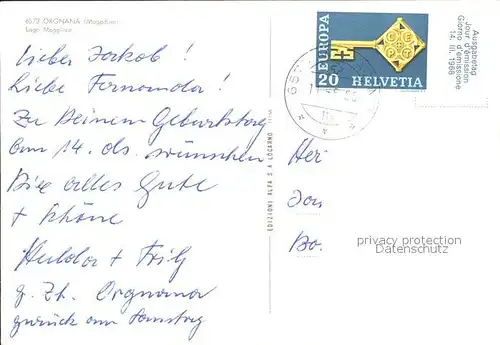 6572 ORGNANA (Magadino)
Lago Maggiore
Lieber Jakob!
Liebe Fernanda!
Zu Deinem Geburtstag
am 14. ds. wünschen
Dir alles Gute
+ Schöne
Hulda + Fritz
z. Zt. Orgnana
zurück am Samstag
EDIZIONI ALFA S A LOCARNO
EUROPA
CEPT
20 HELVETIA
Ausgabetag
Jour d'émission
Giorno d'emissione
14. III. 1968
Her
Jon
Bo
privacy protection
Datenschutz